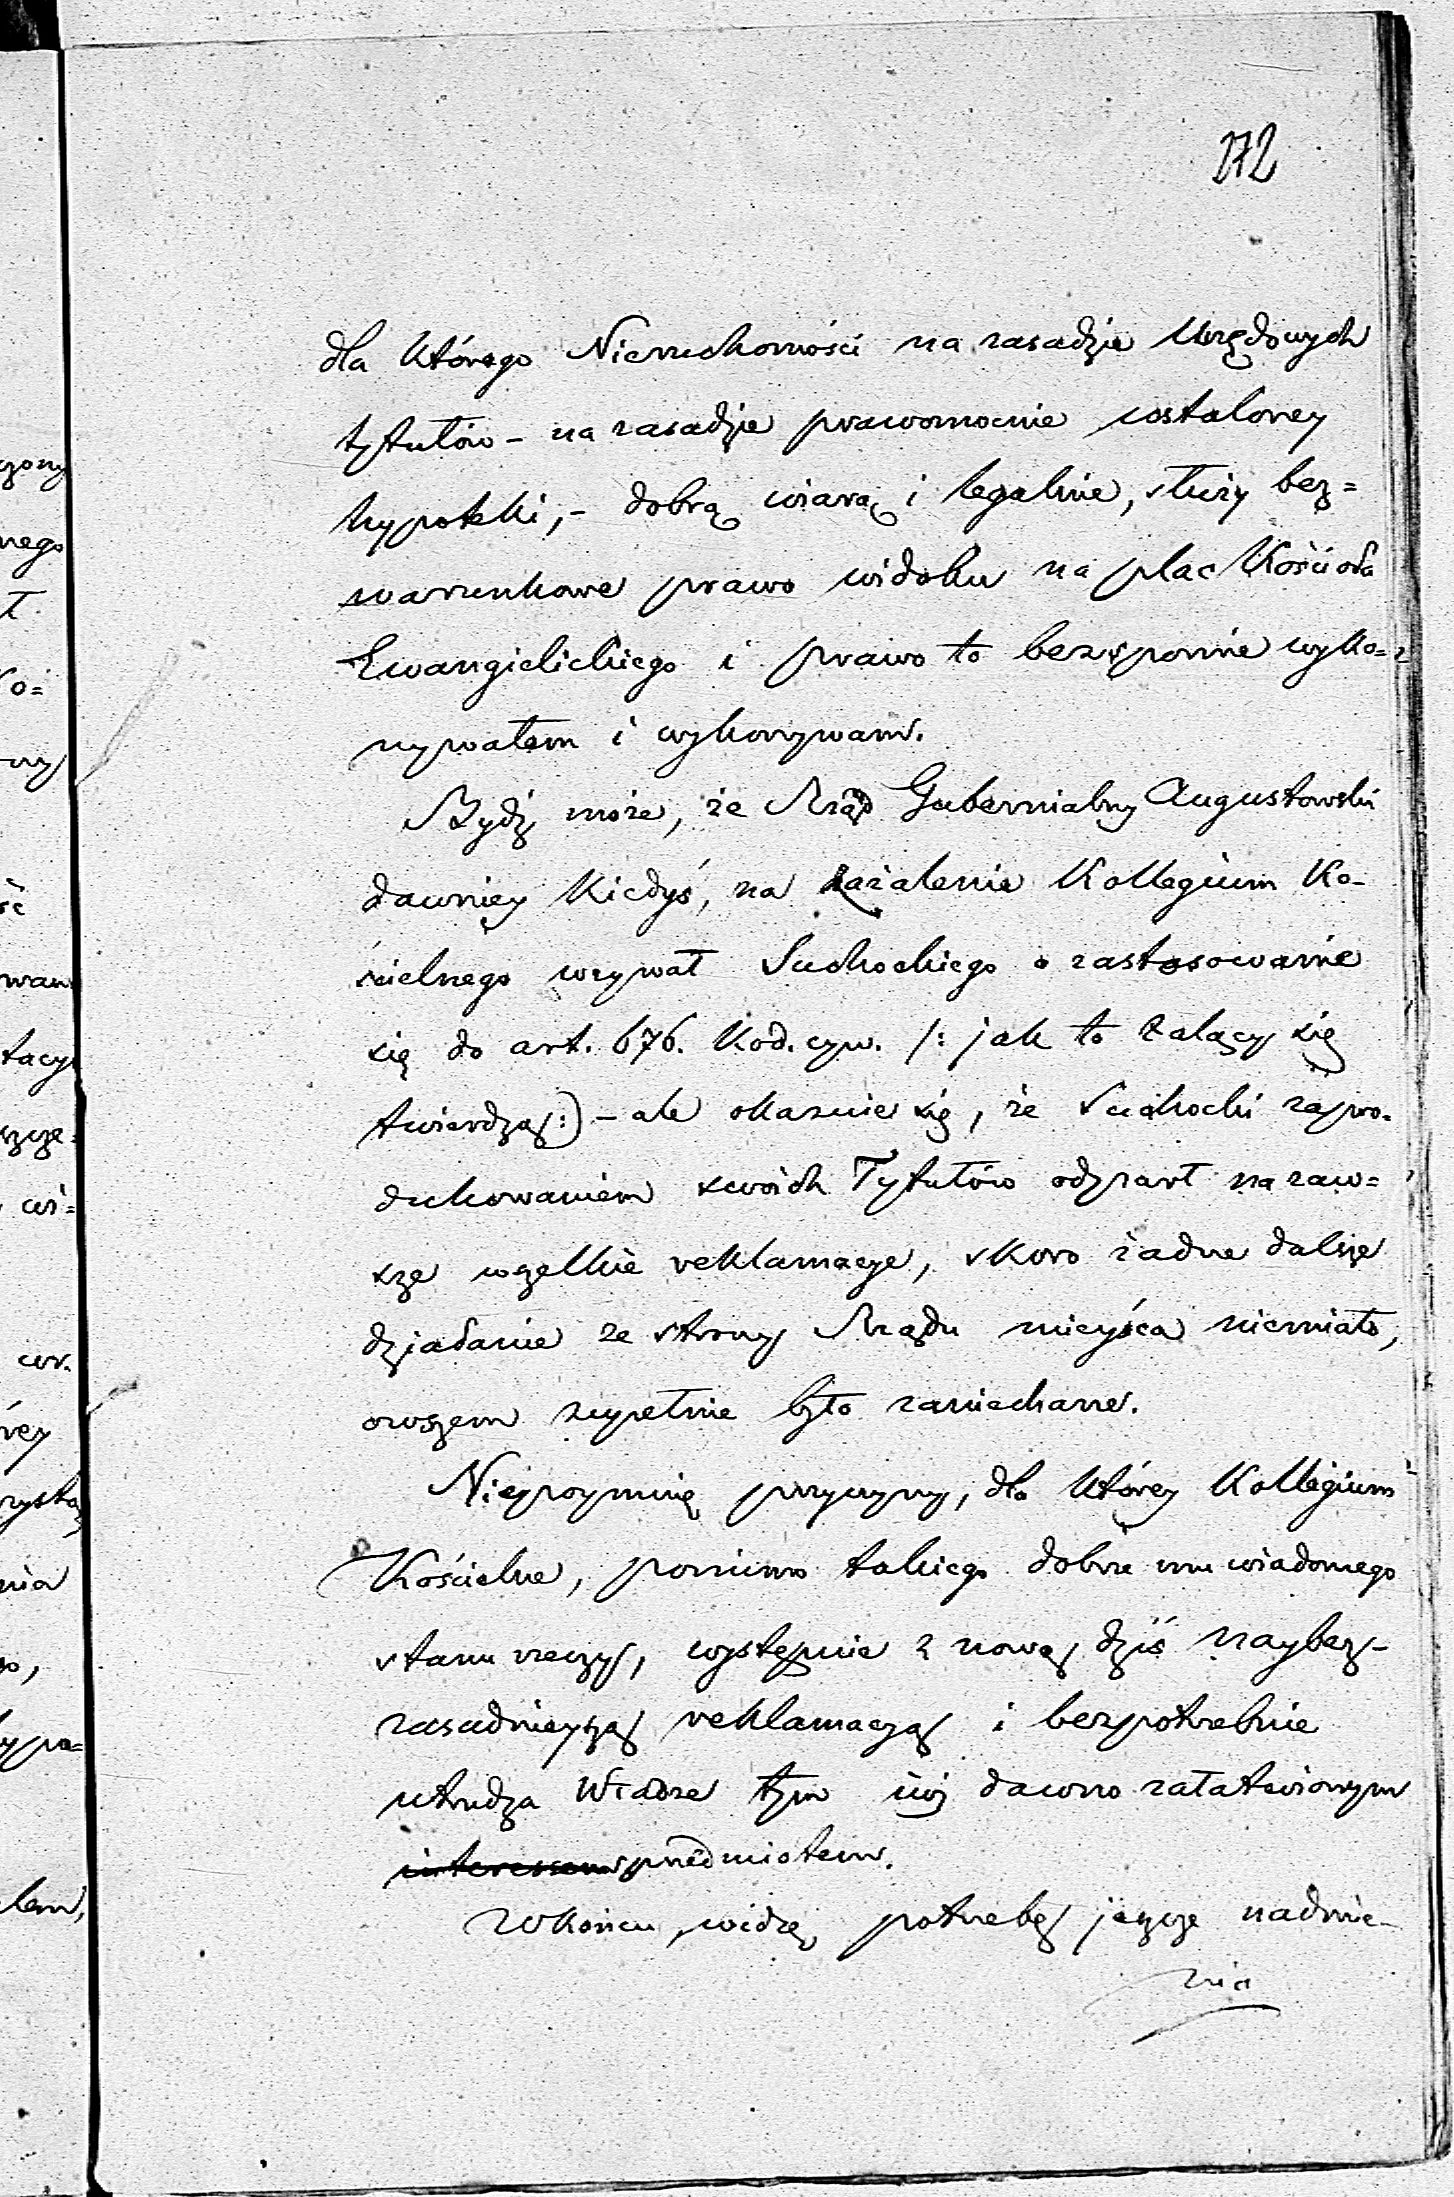 272
dla którego Nieruchomości na zasadzie Urzędowych
tytułów - na zasadzie prawomocnie ustaloney
hypoteki, - dobrą wiarą i legalnie, służy bez=
warunkowe prawo widoku na plac Kościoła
Ewangielickiego i prawo to bezsponie wyko=
nywałem i wykonywam.
Bydź może, że Rząd Gubernialny Augustowski
dawniey kiedyś, na zażalenie Kollegium Ko-
ścielnego wzywał Suchockiego o zastosowanie
się do art. 676. Kod. cyw. /: jak to żalący się
twierdzą :) - ale okazuie się, że Suchocki zapro-
dukowaniem swoich Tytułów odparł na zaw=
sze wszelkie reklamacye, skoro żadne dalsze
działanie ze strony Rządu mieysca niemiało,
owszem zupełnie było zaniechane.
Niepoymuię przyczyny, dla którey Kollegium
Kościelne, pomimo takiego dobrze mu wiadomego
stanu rzeczy, występuie z nową dziś naybez-
zasadnieyszą reklamacyą i bezpotrzebnie
utrudza Władze tym iuż dawno załatwionym
interessem przedmiotem.
Wkońcu, widzę potrzebę jeszcze nadmie-
nia
czony
nego
ł
ko=
ny
ść
wan
tacy
szcze=
wi=
wr.
rey
rysta
nia
o,
hypo=
lem,